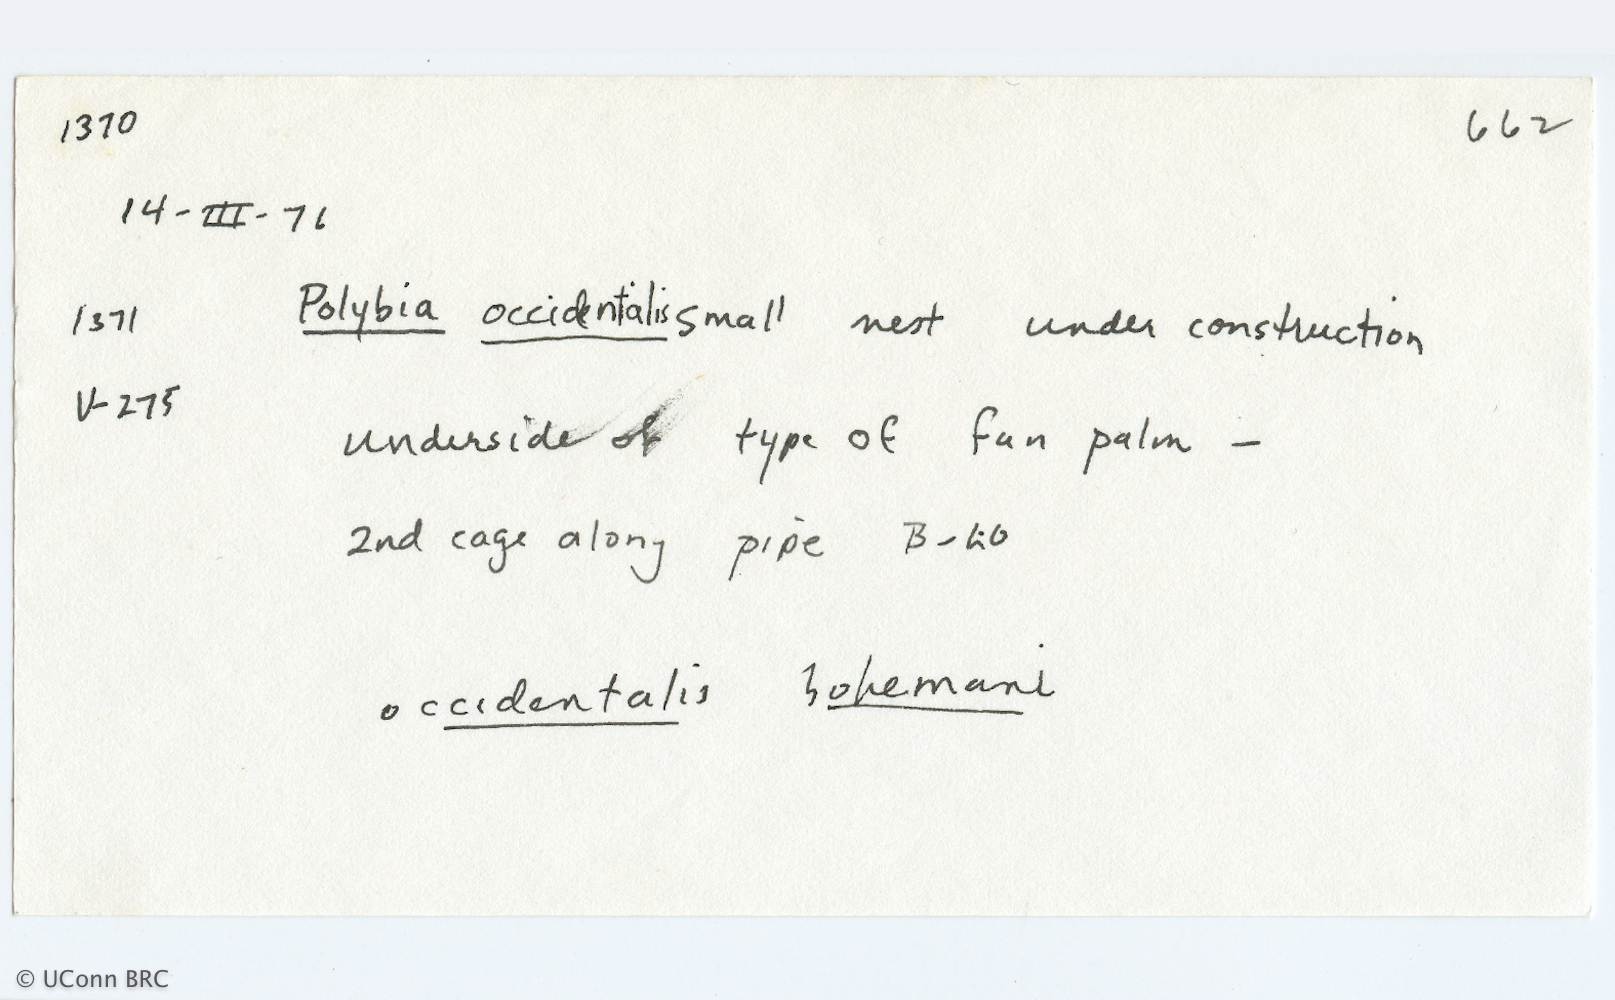 1370 662
14-III-76
1371 Polybia occidentalis small nest under construction
V-275 underside of type of fan palm -
2nd cage along pipe
occidentalis bohemani
© UConn BRC